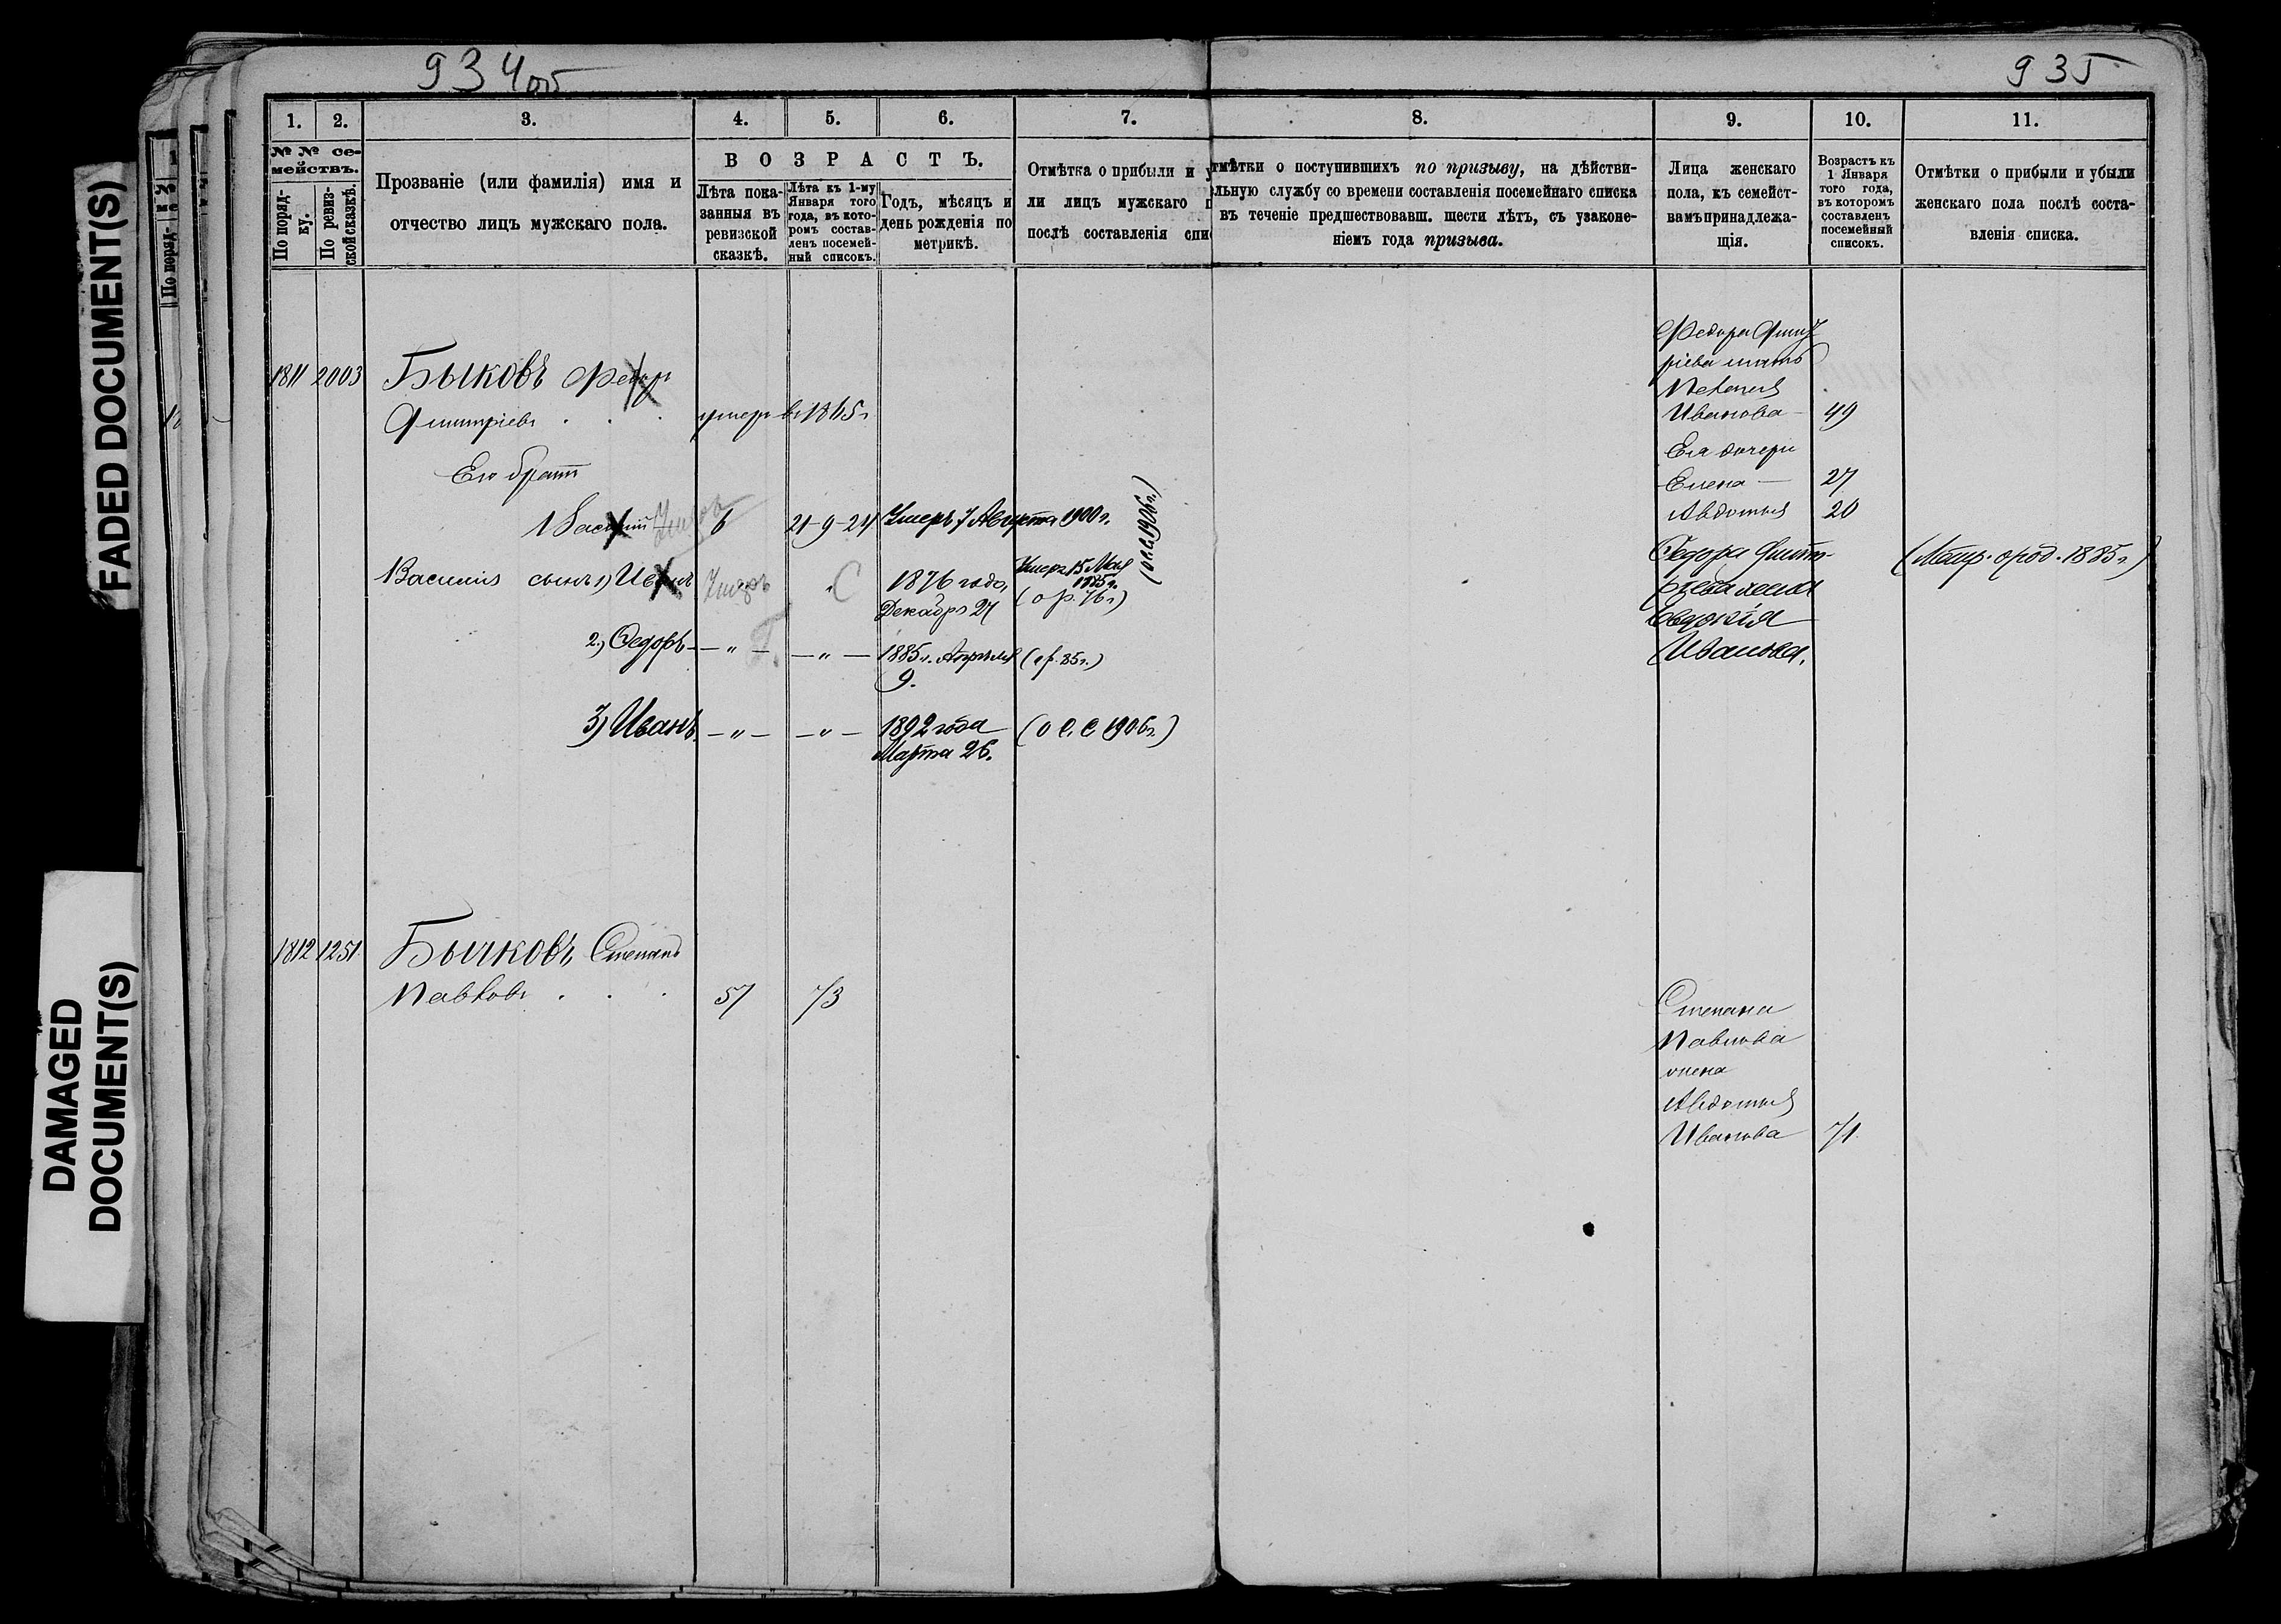 FADED DOCUMENT(S)
DAMAGED
DOCUMENT(S)
934об
935
1.
2.
3.
4.
5.
6.
7.
8.
9.
10.
11.
№ № се-
мействъ.
По поряд-
ку.
По ревиз-
ской сказкѣ.
Прозваніе (или фамилія) имя и
отчество лицъ мужскаго пола.
ВОЗРАСТЪ.
Лѣта пока-
занныя въ
ревизской
сказкѣ.
Лѣта къ 1-му
Января того
года, въ кото-
ромъ состав-
ленъ посемей-
ный списокъ.
Годъ, мѣсяцъ и
день рожденія по
метрикѣ.
Отмѣтка о прибыли и у
ли лицъ мужскаго п
послѣ составленія спи
тмѣтки о поступившихъ по призыву, на дѣйстви-
льную службу со времени составленія посемейнаго списка
въ теченіе предшествовавш. шести лѣтъ, съ узаконе-
ніемъ года призыва.
Лица женскаго
пола, къ семейст-
вамъ принадлежа-
щія.
Возрастъ къ
1 Января
того года,
въ которомъ
составленъ
посемейный
списокъ.
Отмѣтки о прибыли и убыли
женскаго пола послѣ соста-
вленія списка.
1811 2003 Быковъ Федоръ
Дмитріевъ . . . умеръ въ 1865 г
Его братъ
1 Василий Умеръ 6 21-9-24 Умеръ 7 Августа 1900 г.
(о с. с. 1906 г.)
Василія сынъ 1) Иванъ Умеръ " С 1876 года,
Декабря 27
Умеръ 15 Мая
1885 г.
(о р. 76 г.)
2) Федоръ - — " — — " — 1885 г. Апрѣля
9.
(о р. 85 г.)
3) Иванъ. — " — — " — 1892 года
Марта 26.
(о с. с. 1906 г.)
Федора Дмит
ріева мать
Пелагея
Иванова — 49
Ея дочери
Елена — 27
Авдотья 20
Федора Дмит-
ріева жена
Евдокія
Иванова.
(Матр. о род. 1885 г.)
1812 1251 Бычковъ Степанъ
Павловъ . . . 57 73
Степана
Павлова
жена
Авдотья
Иванова 71